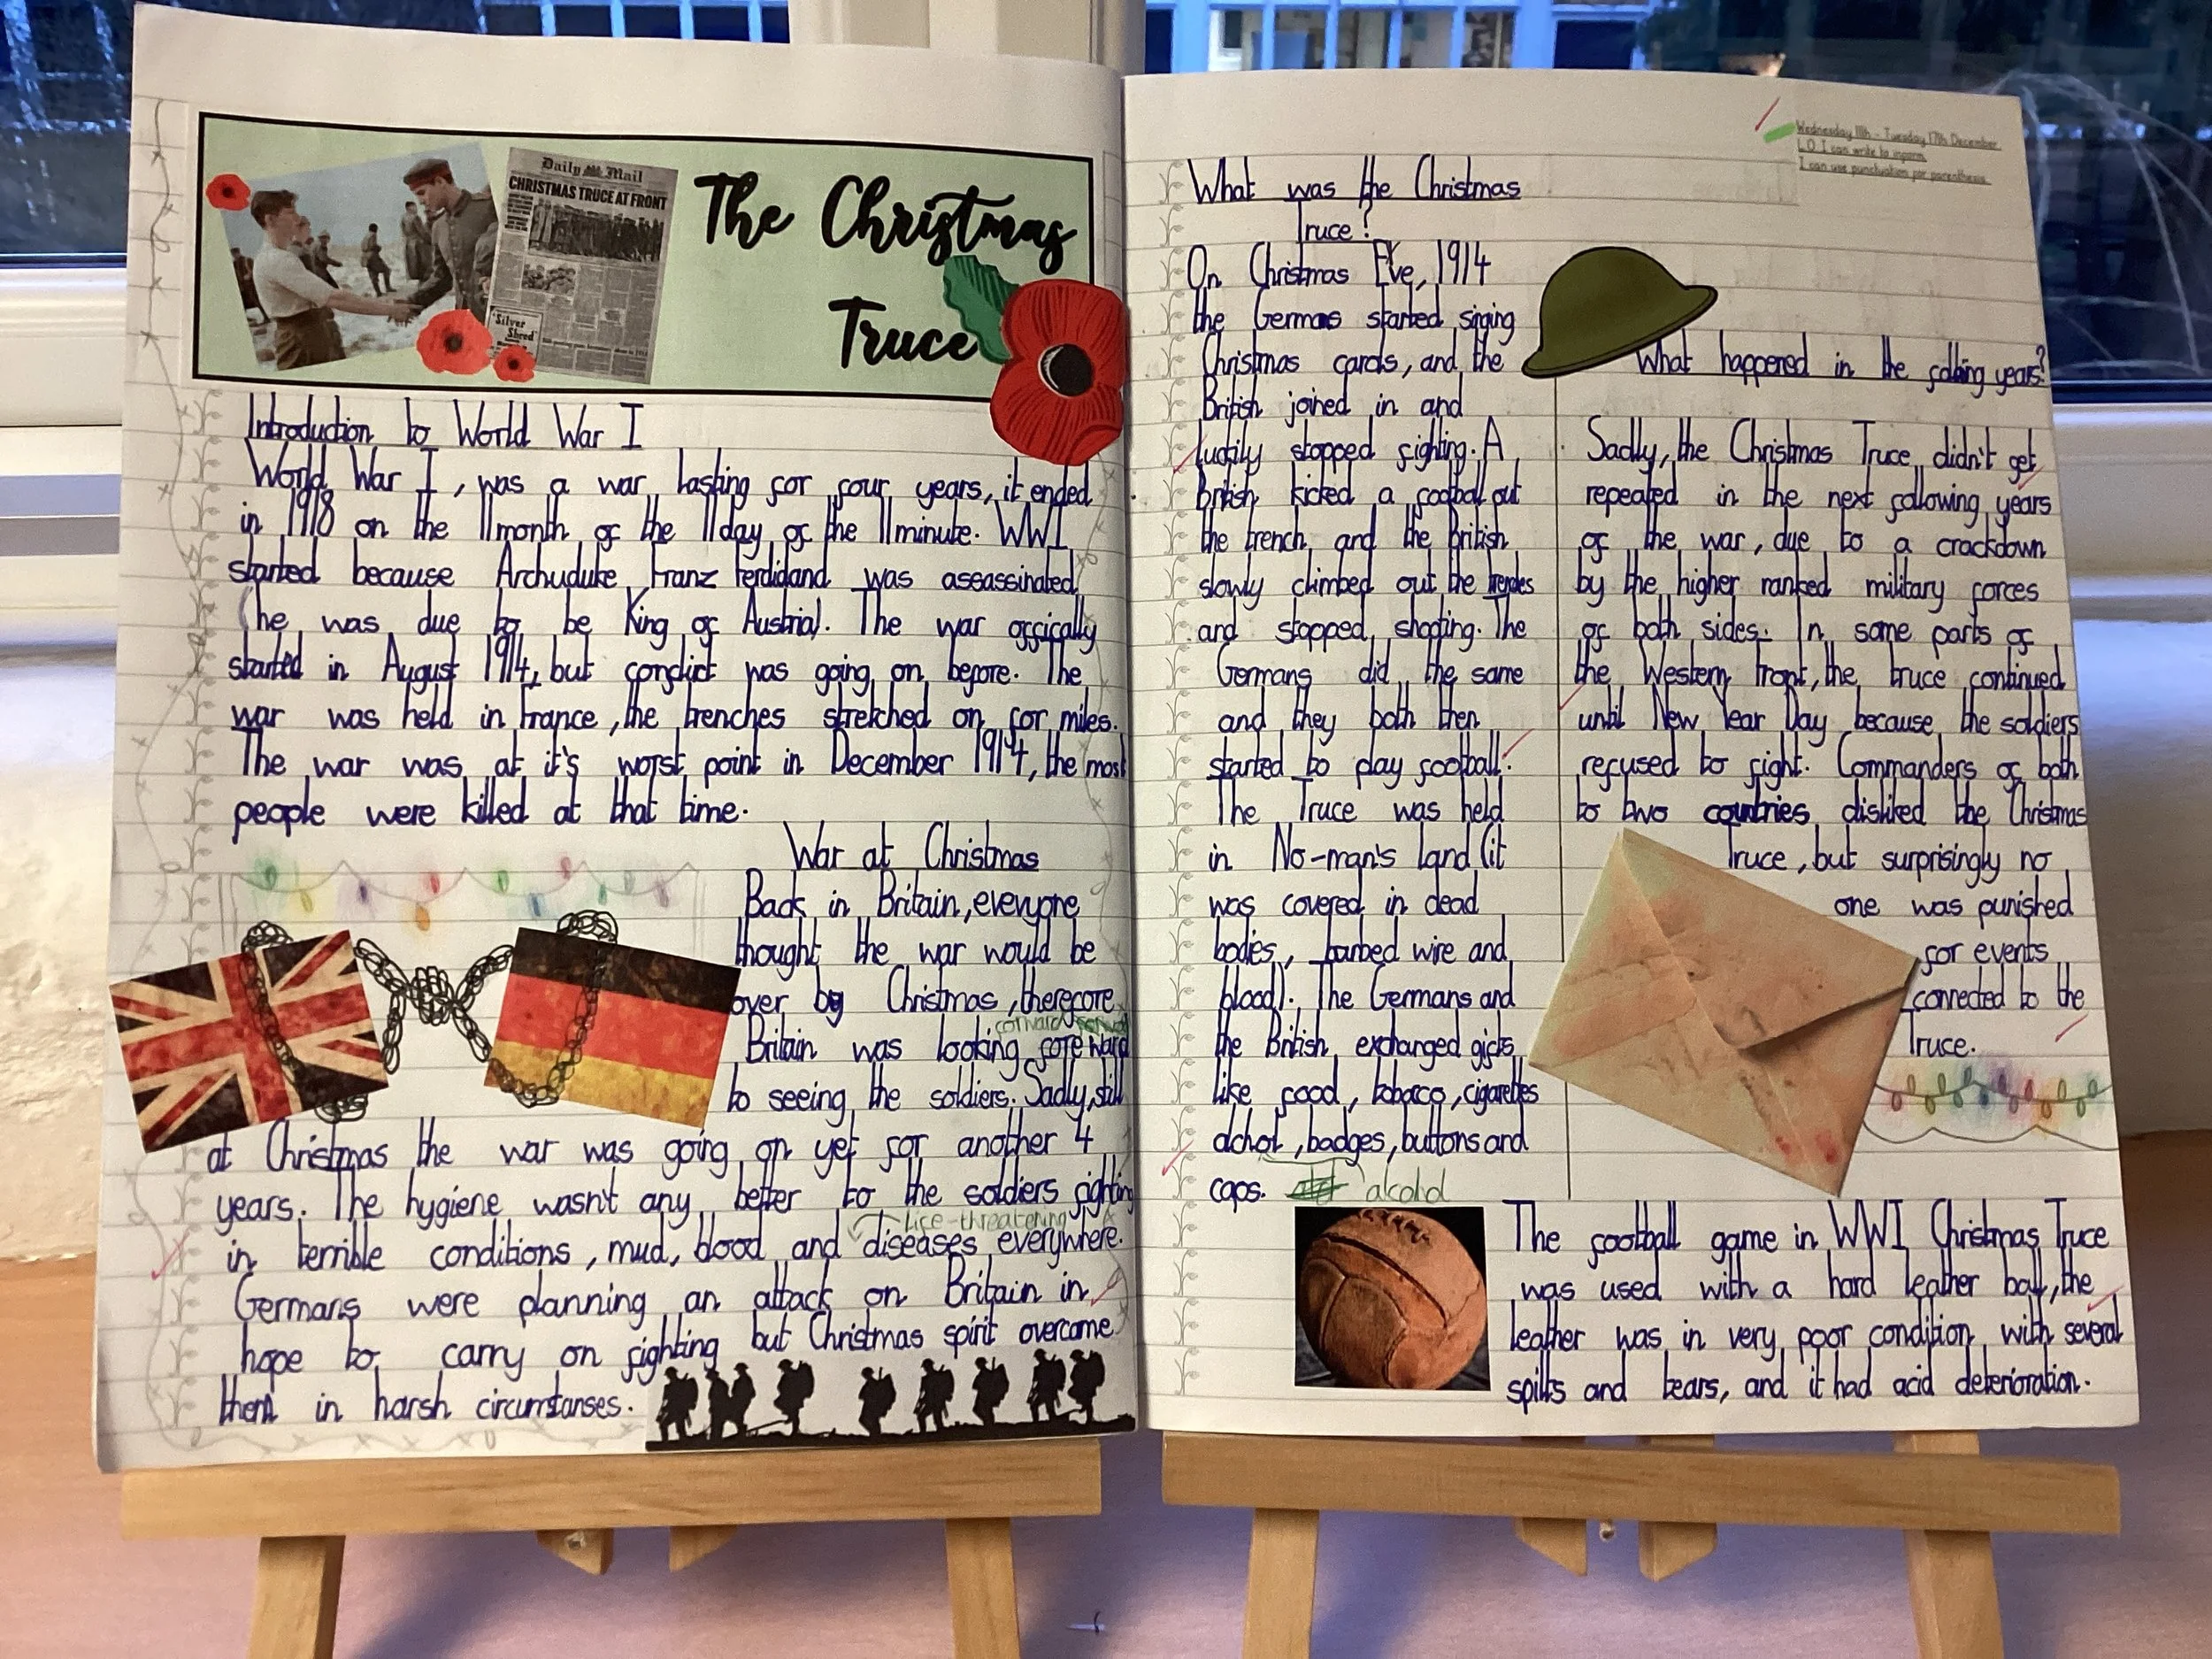 Daily Mail
CHRISTMAS TRUCE AT FRONT
"Silver
Shred"
The Christmas
Truce
Introduction to World War I
World War I, was a war lasting for four years, it ended
in 1918 on the 11month of the 11day of the 11minute. WWI
started because Archuduke Franz Ferdidand was assassinated
(he was due to be King of Austria). The war offically
started in August 1914, but conflict was going on before. The
war was held in France, the trenches stretched on for miles.
The war was at it's worst point in December 1914, the most
people were killed at that time.
War at Christmas
Back in Britain, everyone
thought the war would be
over by Christmas, therefore
forward
Britain was looking foreward
to seeing the soldiers. Sadly, still
at Christmas the war was going on yet for another 4
years. The hygiene wasn't any better to the soldiers fighting
Life-threatening
in terrible conditions, mud, blood and diseases everywhere.
Germans were planning an attack on Britain in
hope to carry on fighting but Christmas spirit overcome
them in harsh circumstanses.
Wednesday 11th - Tuesday 17th December
L.O. I can write to inform.
I can use punctuation for parenthesis.
What was the Christmas
Truce?
On Christmas Eve, 1914
the Germans started singing
Christmas carols, and the
British joined in and
luckily stopped fighting. A
British kicked a football out
the trench and the British
slowly climbed out the
and stopped shooting. The
Germans did the same
and they both then
started to play football.
The Truce was held
in No-man's land (it
was covered in dead
bodies, barbed wire and
blood). The Germans and
the British exchanged gifts
like food, tobaco, cigarettes
alchol, badges, buttons and
caps. alcohol
What happened in the following years?
Sadly, the Christmas Truce didn't get
repeated in the next following years
of the war, due to a crackdown
by the higher ranked military forces
of both sides. In some parts of
the Western Front, the truce continued
until New Year Day because the soldiers
refused to fight. Commanders of both
to two countries disliked the Christmas
Truce, but surprisingly no
one was punished
for events
connected to the
Truce.
The football game in WWI Christmas Truce
was used with a hard leather ball, the
leather was in very poor condition with several
splits and tears, and it had acid deterioration.